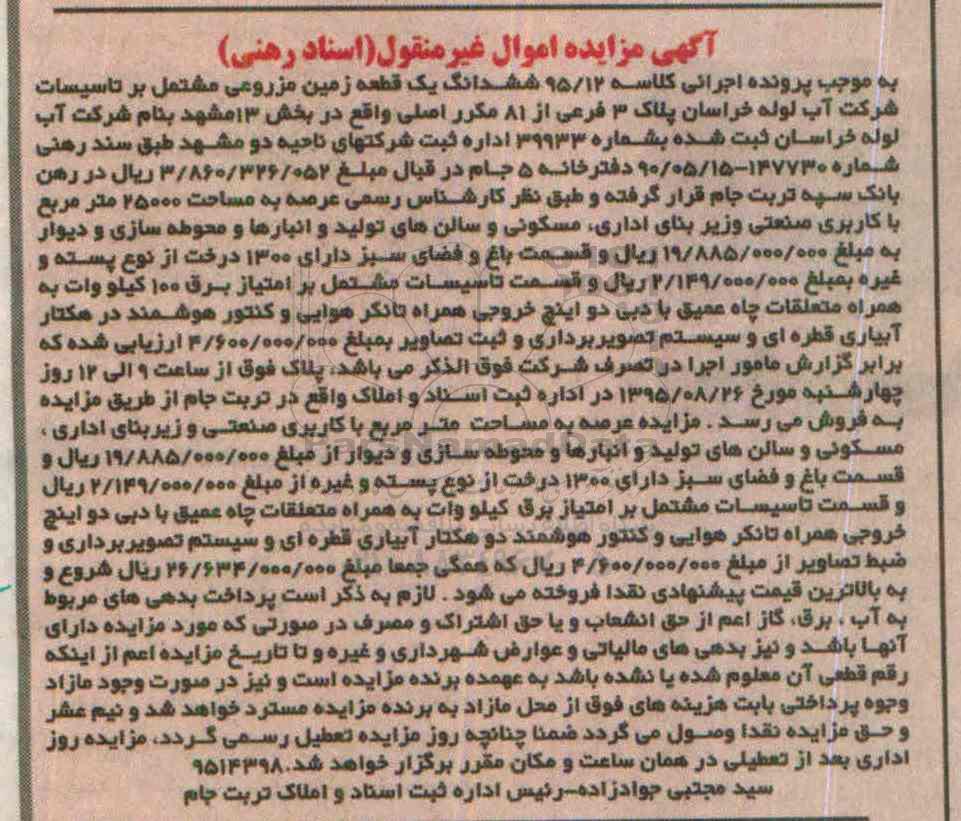 آگهی مزایده اموال غیرمنقول(اسناد رهنی)
به موجب پرونده اجرائی کلاسه ۹۵/۱۲ ششدانگ یک قطعه زمین مزروعی مشتمل بر تاسیسات
شرکت آب لوله خراسان پلاک ۳ فرعی از ۸۱ مکرر اصلی واقع در بخش ۱۳مشهد بنام شرکت آب
لوله خراسان ثبت شده بشماره ۳۹۹۳۳ اداره ثبت شرکتهای ناحیه دو مشهد طبق سند رهنی
شماره ۱۴۷۷۳۰–۹۰/۰۵/۱۵ دفترخانه ۵ جام در قبال مبلغ ۳/۸۶۰/۳۲۶/۰۵۲ ریال در رهن
بانک سپه تربت جام قرار گرفته و طبق نظر کارشناس رسمی عرصه به مساحت ۲۵۰۰۰ متر مربع
با کاربری صنعتی وزیر بنای اداری، مسکونی و سالن های تولید و انبارها و محوطه سازی و دیوار
به مبلغ ۱۹/۸۸۵/۰۰۰/۰۰۰ ریال و قسمت باغ و فضای سبز دارای ۱۳۰۰ درخت از نوع پسته و
غیره بمبلغ ۲/۱۴۹/۰۰۰/۰۰۰ ریال و قسمت تاسیسات مشتمل بر امتیاز برق ۱۰۰ کیلو وات به
همراه متعلقات چاه عمیق با دبی دو اینچ خروجی همراه تانکر هوایی و کنتور هوشمند در هکتار
آبیاری قطره ای و سیستم تصویربرداری و ثبت تصاویر بمبلغ ۴/۶۰۰/۰۰۰/۰۰۰ ارزیابی شده که
برابر گزارش مامور اجرا در تصرف شرکت فوق الذکر می باشد، پلاک فوق از ساعت ۹ الی ۱۲ روز
چهارشنبه مورخ ۱۳۹۵/۰۸/۲۶ در اداره ثبت اسناد و املاک واقع در تربت جام از طریق مزایده
به فروش می رسد . مزایده عرصه به مساحت متر مربع با کاربری صنعتی و زیربنای اداری ،
مسکونی و سالن های تولید و انبارها و محوطه سازی و دیوار از مبلغ ۱۹/۸۸۵/۰۰۰/۰۰۰ ریال و
قسمت باغ و فضای سبز دارای ۱۳۰۰ درخت از نوع پسته و غیره از مبلغ ۲/۱۴۹/۰۰۰/۰۰۰ ریال
و قسمت تاسیسات مشتمل بر امتیاز برق کیلو وات به همراه متعلقات چاه عمیق با دبی دو اینچ
خروجی همراه تانکر هوایی و کنتور هوشمند دو هکتار آبیاری قطره ای و سیستم تصویربرداری و
ضبط تصاویر از مبلغ ۴/۶۰۰/۰۰۰/۰۰۰ ریال که همگی جمعا مبلغ ۲۶/۶۳۴/۰۰۰/۰۰۰ ریال شروع و
به بالاترین قیمت پیشنهادی نقدا فروخته می شود . لازم به ذکر است پرداخت بدهی های مربوط
به آب ، برق، گاز اعم از حق انشعاب و یا حق اشتراک و مصرف در صورتی که مورد مزایده دارای
آنها باشد و نیز بدهی های مالیاتی و عوارض شهرداری و غیره و تا تاریخ مزایده اعم از اینکه
رقم قطعی آن معلوم شده یا نشده باشد به عهمده برنده مزایده است و نیز در صورت وجود مازاد
وجوه پرداختی بابت هزینه های فوق از محل مازاد به برنده مزایده مسترد خواهد شد و نیم عشر
و حق مزایده نقدا وصول می گردد ضمنا چنانچه روز مزایده تعطیل رسمی گردد، مزایده روز
اداری بعد از تعطیلی در همان ساعت و مکان مقرر برگزار خواهد شد.۹۵۱۴۳۹۸
سید مجتبی جوادزاده–رئیس اداره ثبت اسناد و املاک تربت جام
ParsNamadData